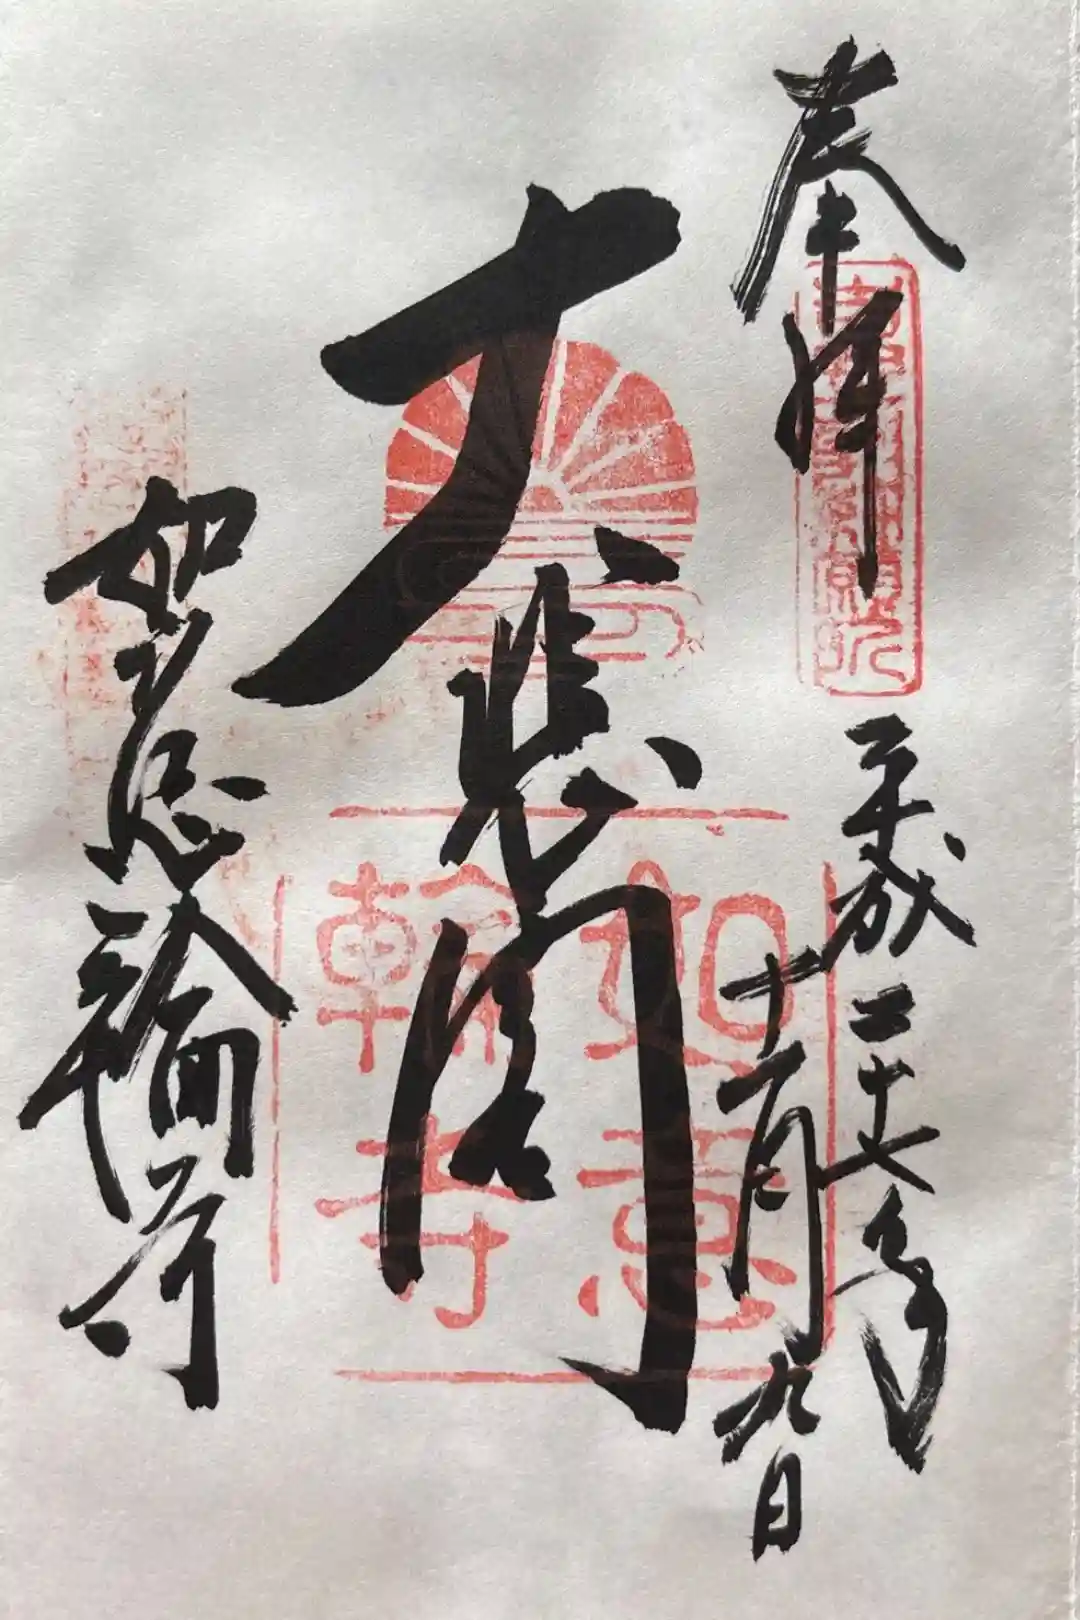 奉拝
平成二十七年
十一月九日
大悲閣
如意輪寺
如意
輪寺